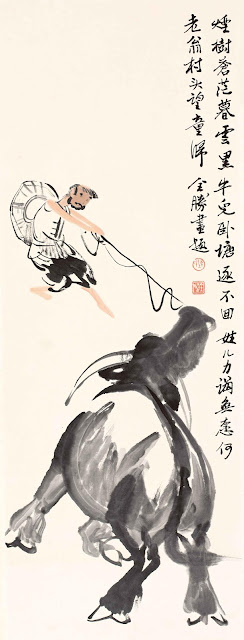 煙樹蒼茫暮雲黑牛兒卧塘逐不回娃儿力竭無奈何
老翁村头望童歸 全勝畫題